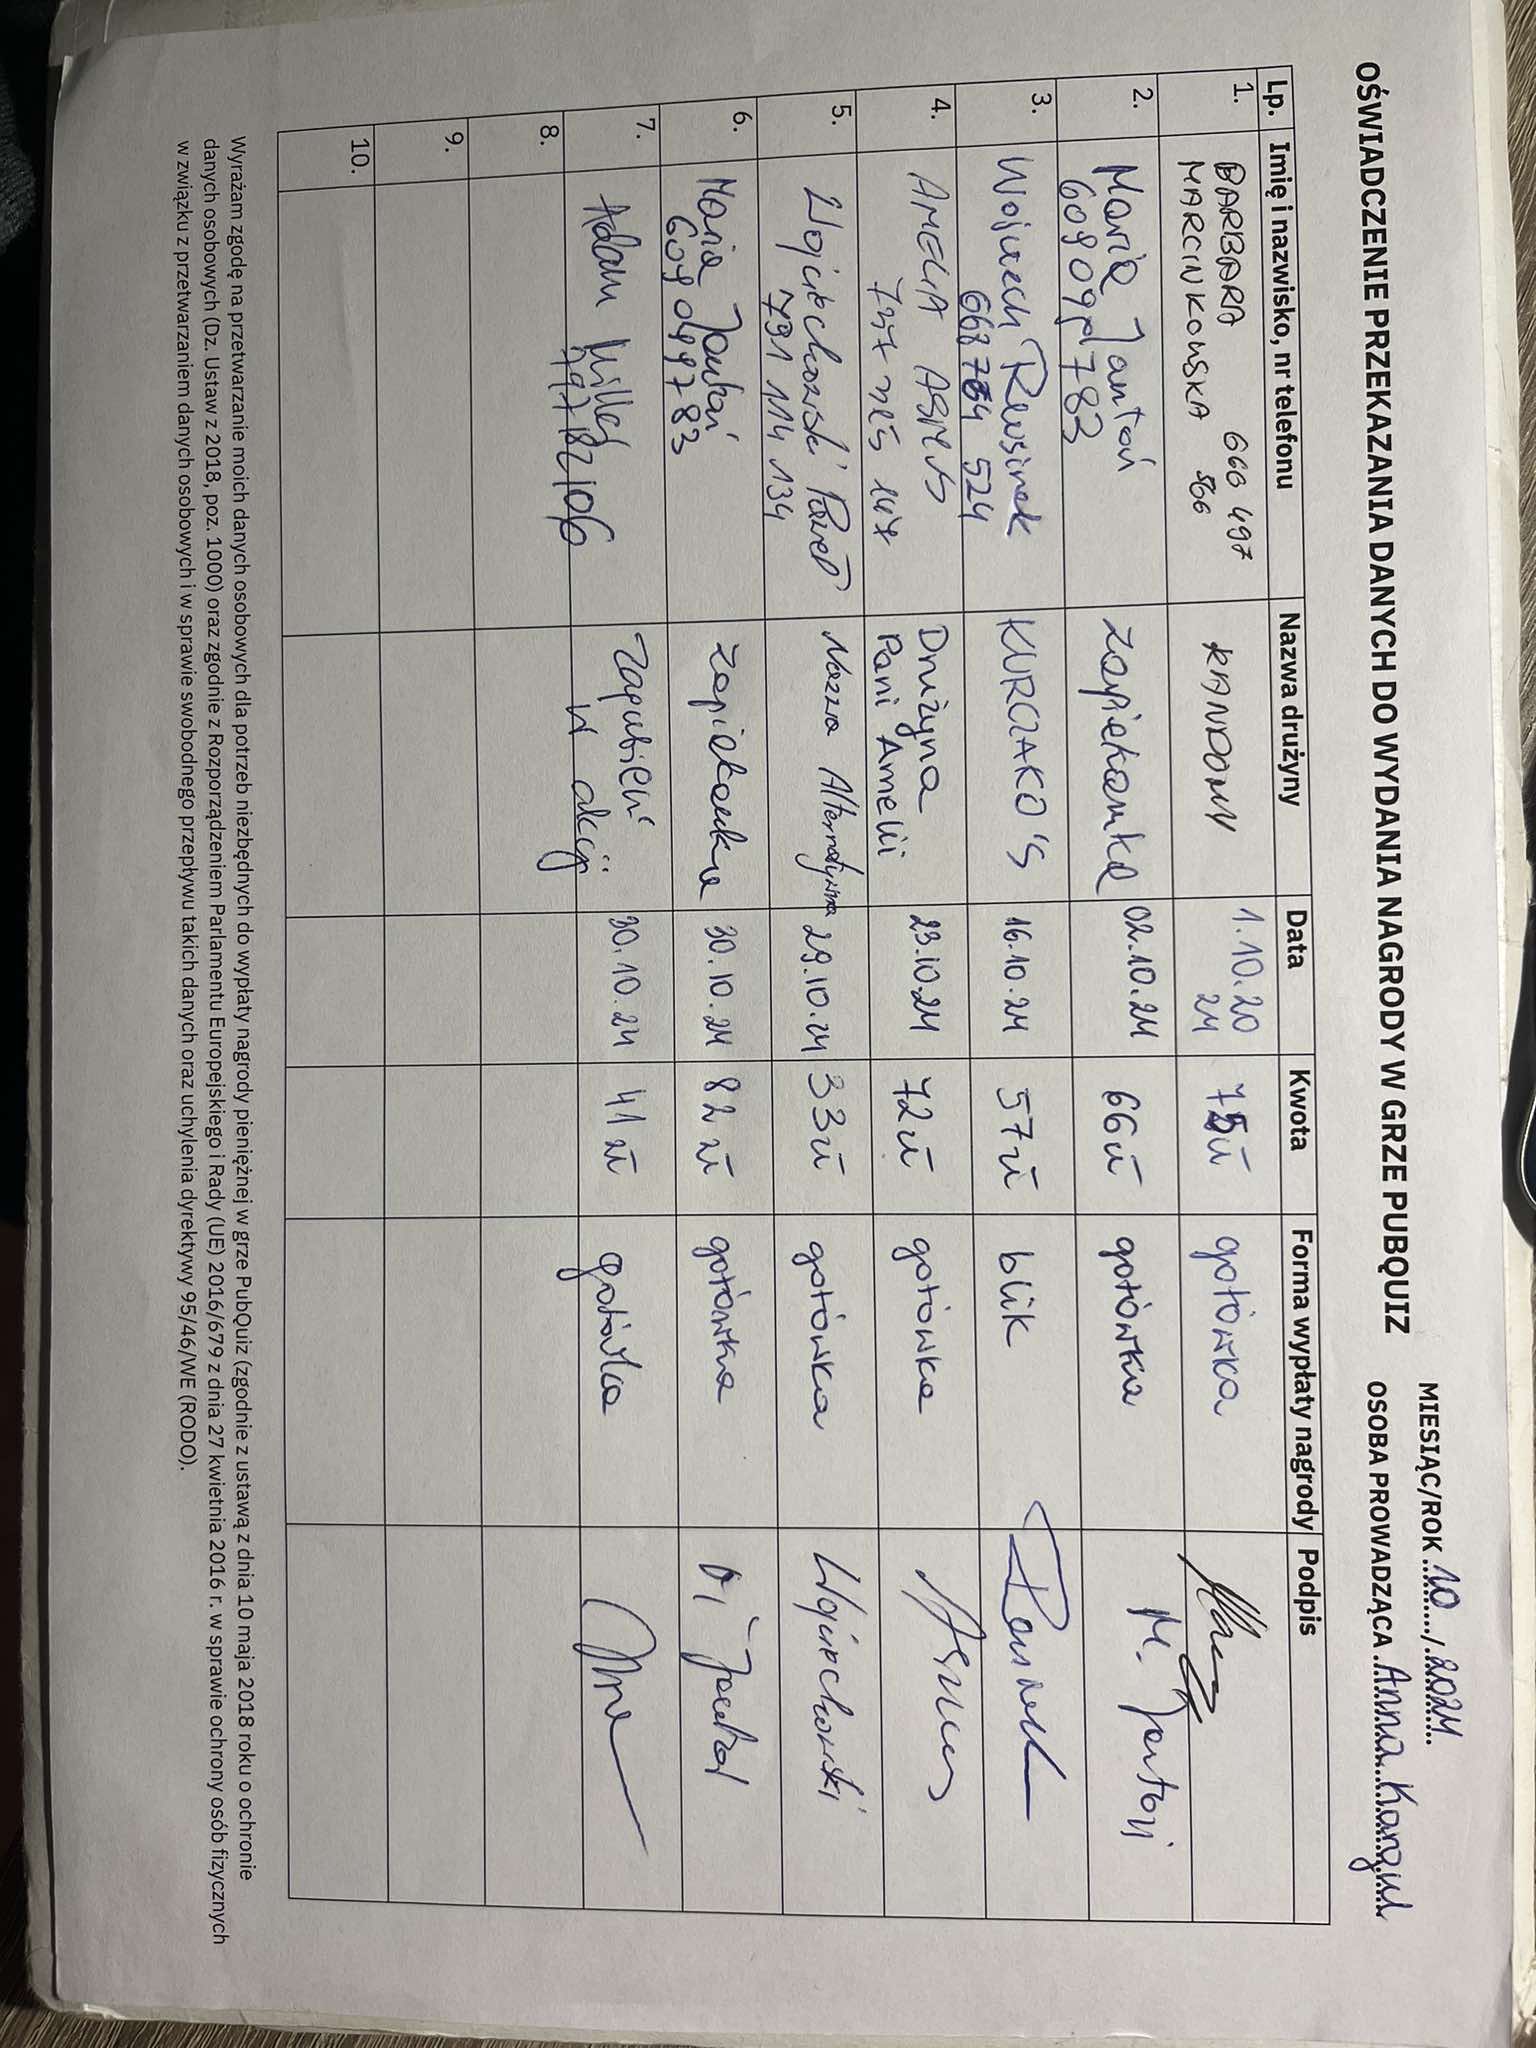 MIESIĄC/ROK 10/2024
OŚWIADCZENIE PRZEKAZANIA DANYCH DO WYDANIA NAGRODY W GRZE PUBQUIZ
OSOBA PROWADZĄCA Anna Kargul
Lp. Imię i nazwisko, nr telefonu Nazwa drużyny Data Kwota Forma wypłaty nagrody Podpis
1. BARBARA 666 497
MARCINKOWSKA 566
RANDOMY 1.10.20
24
75zł gotówka
2. Maria Jantoń
609099783
zapiekanka 02.10.24 66zł gotówka M. Jantoń
3. Wojciech Rewsinek
668 764 524
KURCZAKO'S 16.10.24 57zł blik
4. AMELIA ASMUS
Drużyna
Pani Amelii
23.10.24 72zł gotówka Asmus
5. Wojciechowski Paweł
791 114 134
Nasza Alternatywa 29.10.24 33zł gotówka Wojciechowski
6. Maria Jantoń
609099783
zapiekanka 30.10.24 82 zł gotówka
7. Adam Miller
797182106
Zagubieni
w akcji
30.10.24 41 zł gotówka
8.
9.
10.
Wyrażam zgodę na przetwarzanie moich danych osobowych dla potrzeb niezbędnych do wypłaty nagrody pieniężnej w grze PubQuiz (zgodnie z ustawą z dnia 10 maja 2018 roku o ochronie
danych osobowych (Dz. Ustaw z 2018, poz. 1000) oraz zgodnie z Rozporządzeniem Parlamentu Europejskiego i Rady (UE) 2016/679 z dnia 27 kwietnia 2016 r. w sprawie ochrony osób fizycznych
w związku z przetwarzaniem danych osobowych i w sprawie swobodnego przepływu takich danych oraz uchylenia dyrektywy 95/46/WE (RODO).